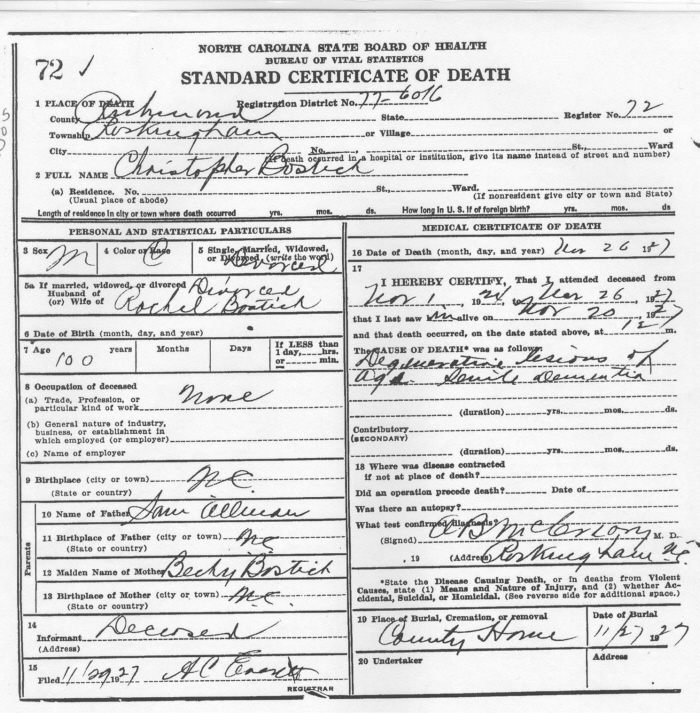 NORTH CAROLINA STATE BOARD OF HEALTH
BUREAU OF VITAL STATISTICS
STANDARD CERTIFICATE OF DEATH
72
1 PLACE OF DEATH Registration District No. 77-6016
County Richmond State Register No. 72
Township Rockingham or Village or
City No. St., Ward
(If death occurred in a hospital or institution, give its name instead of street and number)
2 FULL NAME Christopher Bostick
(a) Residence. No. St., Ward.
(Usual place of abode) (If nonresident give city or town and State)
Length of residence in city or town where death occurred yrs. mos. ds. How long in U. S. if of foreign birth? yrs. mos. ds.
PERSONAL AND STATISTICAL PARTICULARS
3 Sex M 4 Color or Race C 5 Single, Married, Widowed, or Divorced, (write the word) Divorced
5a If married, widowed, or divorced Divorced
Husband of
(or) Wife of Rachel Bostick
6 Date of Birth (month, day, and year)
7 Age 100 years Months Days If LESS than 1 day, hrs. or min.
8 Occupation of deceased
(a) Trade, Profession, or particular kind of work None
(b) General nature of industry, business, or establishment in which employed (or employer)
(c) Name of employer
9 Birthplace (city or town) NC
(State or country)
Parents
10 Name of Father Sam
11 Birthplace of Father (city or town) NC
(State or country)
12 Maiden Name of Mother Becky Bostick
13 Birthplace of Mother (city or town) N.C.
(State or country)
14
Informant Deceased
(Address)
15
Filed 11/29 1927 AC Everett
REGISTRAR
MEDICAL CERTIFICATE OF DEATH
16 Date of Death (month, day, and year) Nov 26 1927
17
I HEREBY CERTIFY, That I attended deceased from
Nov 1, 1924, to Nov 26, 1927
that I last saw him alive on Nov 20, 1927
and that death occurred, on the date stated above, at 12 m.
The CAUSE OF DEATH* was as follows:
Degenerative lesions of
age. Senile Dementia
(duration) yrs. mos. ds.
Contributory
(SECONDARY)
(duration) yrs. mos. ds.
18 Where was disease contracted
if not at place of death?
Did an operation precede death? Date of
Was there an autopsy?
What test confirmed diagnosis?
(Signed) M. D.
, 19 (Address) Rockingham NC
*State the Disease Causing Death, or in deaths from Violent Causes, state (1) Means and Nature of Injury, and (2) whether Accidental, Suicidal, or Homicidal. (See reverse side for additional space.)
19 Place of Burial, Cremation, or removal Date of Burial
County Home 11/27 1927
20 Undertaker Address